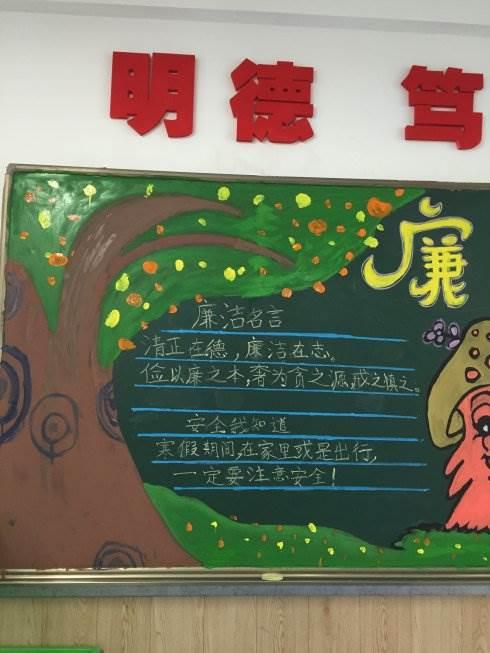 明德笃
廉
廉洁名言
清正在德，廉洁在志。
俭以廉之本，奢为贪之源，戒之慎之。
安全我知道
寒假期间，在家里或是出行，
一定要注意安全！